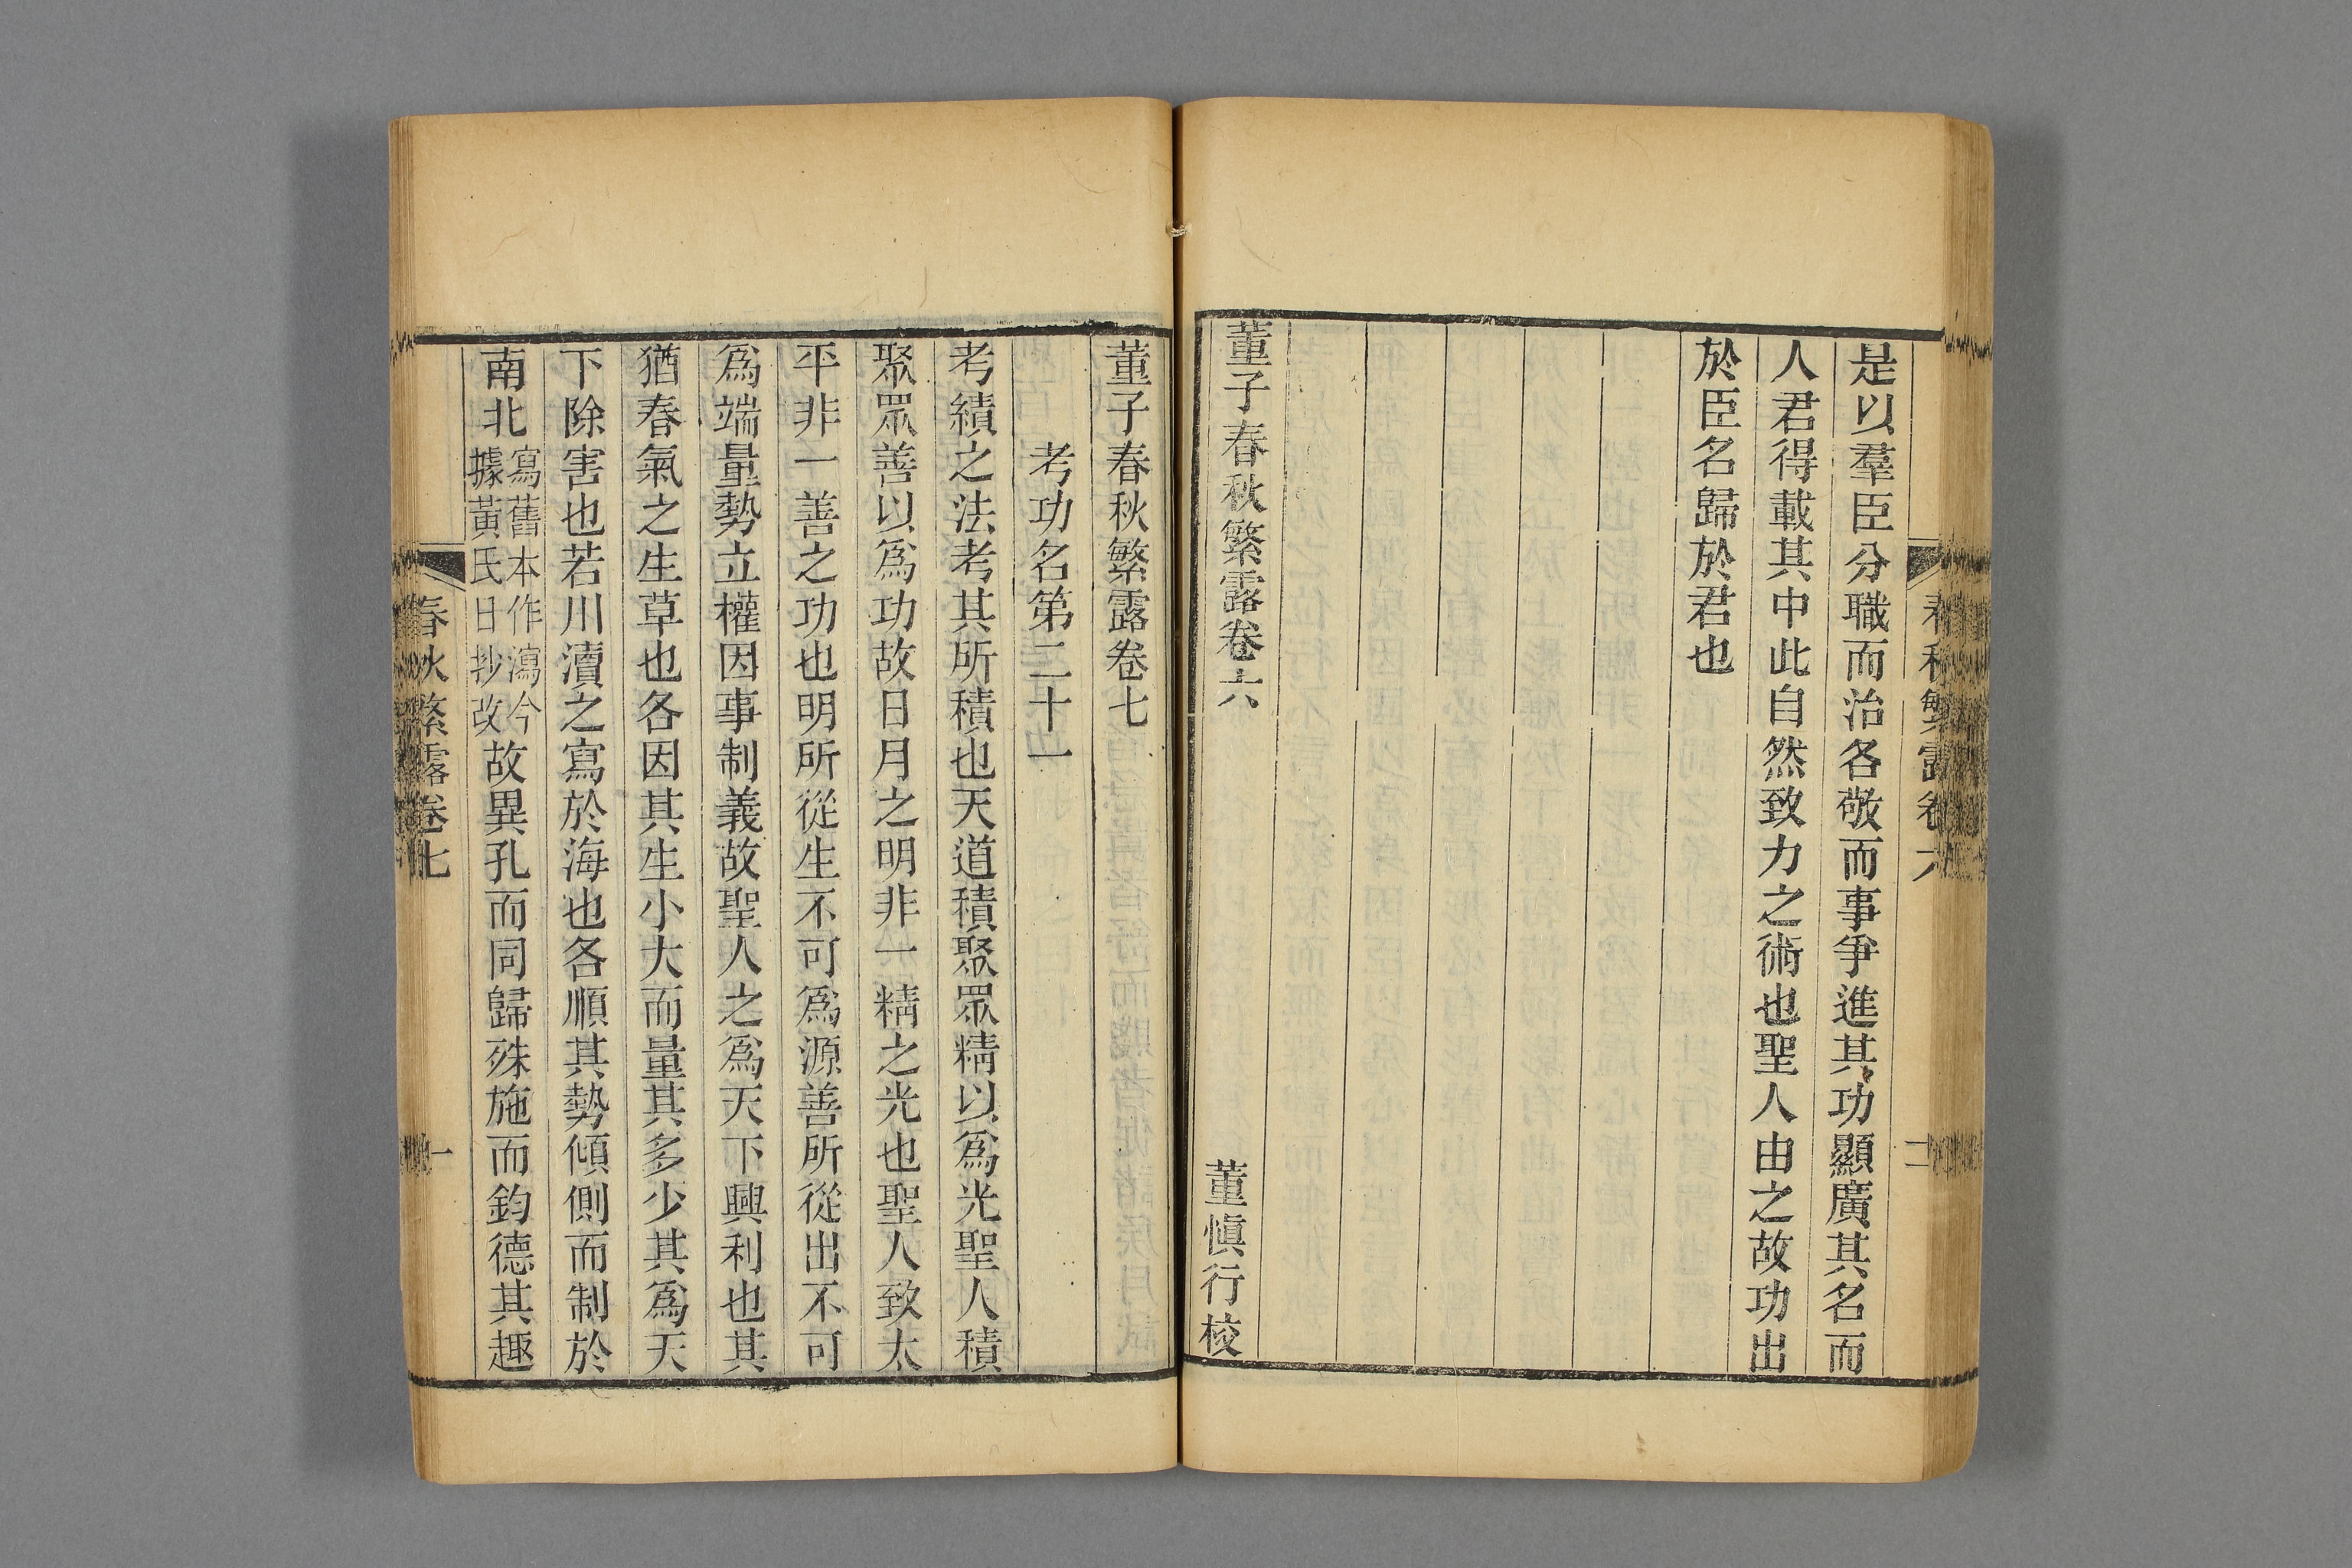 春秋繁露卷六
是以羣臣分職而治各敬而事爭進其功顯廣其名而
人君得載其中此自然致力之術也聖人由之故功出
於臣名歸於君也
董子春秋繁露卷六
董愼行校
董子春秋繁露卷七
考功名第二十一
考績之法考其所積也天道積聚眾精以爲光聖人積
聚眾善以爲功故日月之明非一精之光也聖人致太
平非一善之功也明所從生不可爲源善所從出不可
爲端量勢立權因事制義故聖人之爲天下興利也其
猶春氣之生草也各因其生小大而量其多少其爲天
下除害也若川瀆之寫於海也各順其勢傾側而制於
南北寫舊本作瀉今據黃氏日抄改故異孔而同歸殊施而鈞德其趣
春秋繁露卷七
一